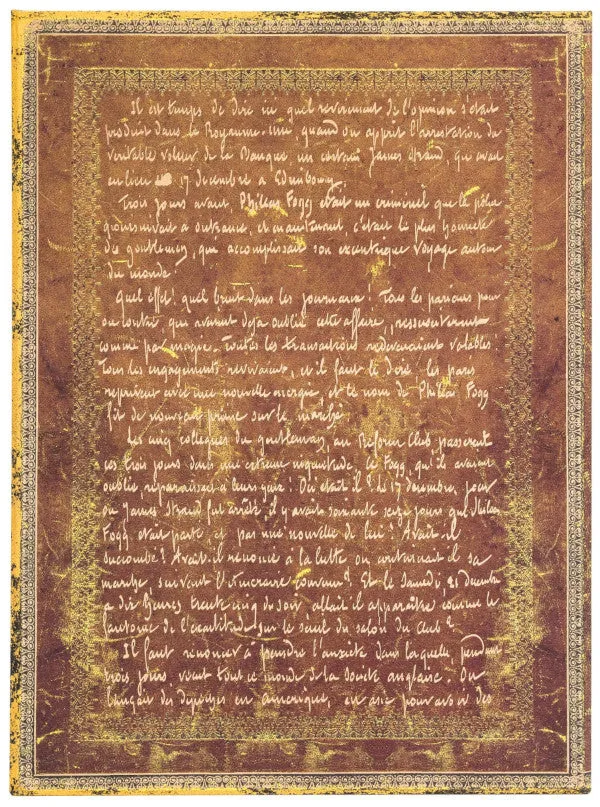 Il est temps de dire ici quel revirement de l'opinion s'était
produit dans le Royaume-Uni, quand on apprit l'arrestation du
véritable voleur de la Banque un certain James Strand, qui avait
eu lieu le 17 décembre à Edimbourg.
Trois jours avant, Phileas Fogg était un criminel que la police
poursuivait à outrance, et maintenant, c'était le plus honnête
des gentlemen, qui accomplissait son excentrique voyage autour
du monde.
Quel effet, quel bruit dans les journaux! Tous les parieurs pour
ou contre, qui avaient déjà oublié cette affaire, ressuscitèrent
comme par magie. Toutes les transactions redevenaient valables!
Tous les engagements revivaient, et il faut le dire, les paris
reprirent avec une nouvelle énergie, et le nom de Phileas Fogg
fit de nouveau prime sur le marché.
Les cinq collègues du gentleman, au Reform Club passèrent
ces trois jours dans une certaine inquiétude. Ce Fogg, qu'ils avaient
oublié, reparaissait à leurs yeux! Où était-il? Le 17 décembre, jour
où James Strand fut arrêté, il y avait soixante seize jours que Phileas
Fogg était parti, et pas une nouvelle de lui! Avait-il
succombé? Avait-il renoncé à la lutte ou continuait il sa
marche suivant l'itinéraire convenu? Et le Samedi, 21 Décembre
à dix heures trente cinq du soir allait-il apparaître comme le
de l'exactitude sur le seuil du salon du Club?
Il faut renoncer à peindre l'anxiété dans laquelle pendant
trois jours, vécut tout ce monde de la Société anglaise! On
lançait des dépêches en Amérique, en Asie pour avoir des